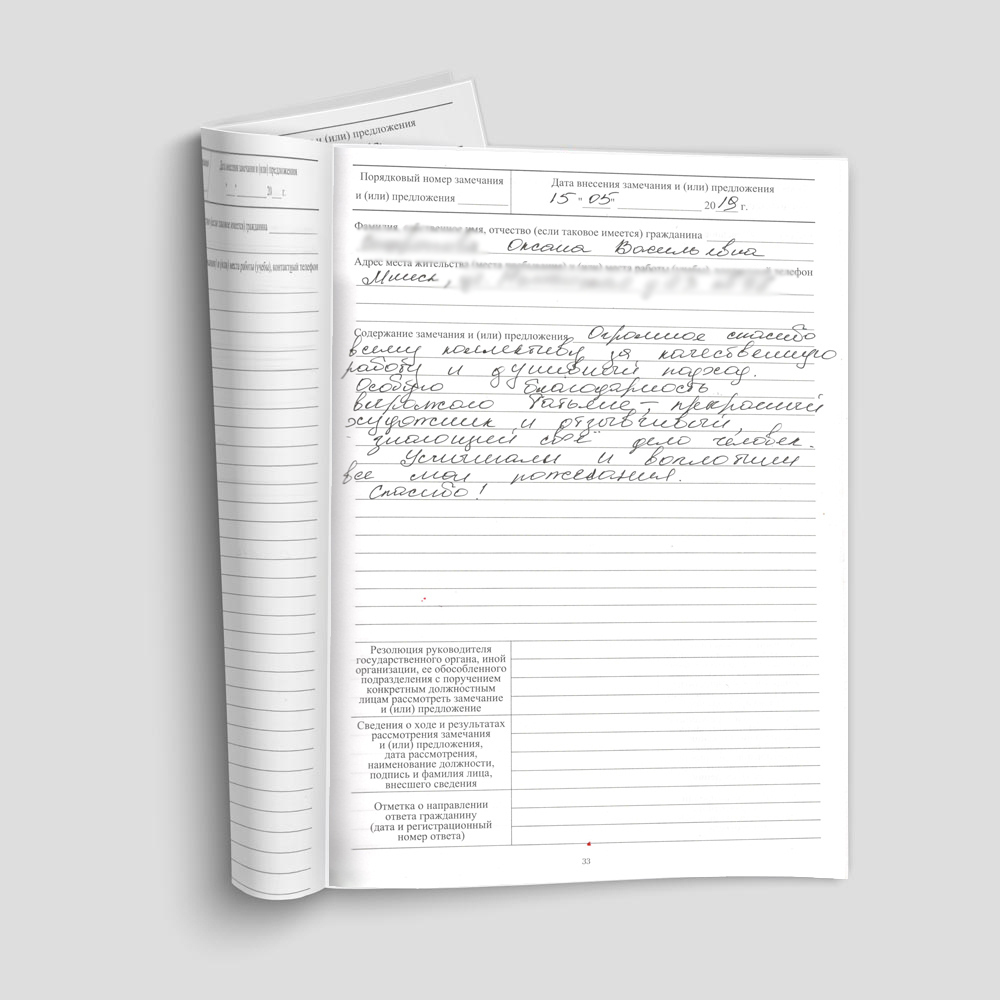 и (или) предложения
Дата внесения замечания и (или) предложения
" " 20 г.
(если таковое имеется) гражданина
и (или) места работы (учебы), контактный телефон
Порядковый номер замечания
и (или) предложения
Дата внесения замечания и (или) предложения
15 " 05 " 2019 г.
Фамилия, собственное имя, отчество (если таковое имеется) гражданина
Оксана Васильевна
Адрес места жительства (места пребывания) и (или) места работы (учебы), контактный телефон
Минск,
Содержание замечания и (или) предложения Огромное спасибо
всему коллективу за качественную
работу и душевный подход.
Особую благодарность
выражаю Татьяне – прекрасный
художник и отзывчивый,
знающий своё дело человек.
Услышали и воплотили
все мои пожелания.
Спасибо!
Резолюция руководителя
государственного органа, иной
организации, ее обособленного
подразделения с поручением
конкретным должностным
лицам рассмотреть замечание
и (или) предложение
Сведения о ходе и результатах
рассмотрения замечания
и (или) предложения,
дата рассмотрения,
наименование должности,
подпись и фамилия лица,
внесшего сведения
Отметка о направлении
ответа гражданину
(дата и регистрационный
номер ответа)
33